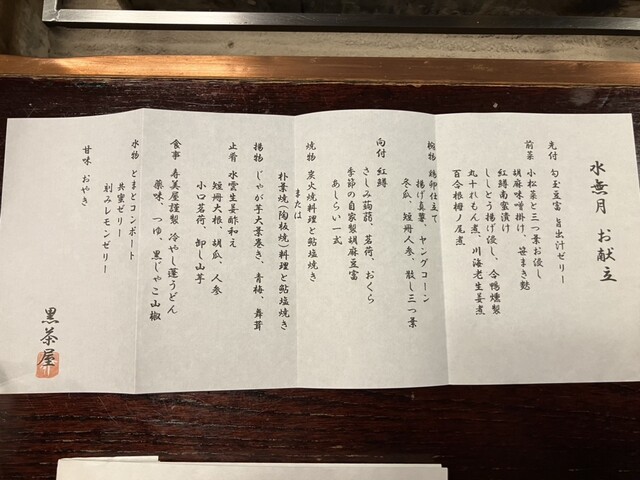 水無月 お献立
先付 勾玉豆富 旨出汁ゼリー
前菜 小松菜と三つ葉お浸し
胡麻味噌掛け、笹まき麩
紅鱒南蛮漬け
ししとう揚げ浸し、合鴨燻製
丸十れもん煮、川海老生姜煮
百合根梅ノ尾煮
椀物 鶏卵仕立て
揚げ真薯、ヤングコーン
冬瓜、短冊人参、散し三つ葉
向付 紅鱒
さしみ蒟蒻、茗荷、おくら
季節の自家製胡麻豆富
あしらい一式
焼物 炭火焼料理と鮎塩焼き
または
朴葉焼(陶板焼)料理と鮎塩焼き
揚物 じゃが芋大葉巻き、青梅、舞茸
止肴 水雲生姜酢和え
短冊大根、胡瓜、人参
小口茗荷、卸し山芋
食事 寿美屋謹製 冷やし蓬うどん
薬味、つゆ、黒じゃこ山椒
水物 とまとコンポート
共蜜ゼリー
刻みレモンゼリー
甘味 おやき
黒茶屋